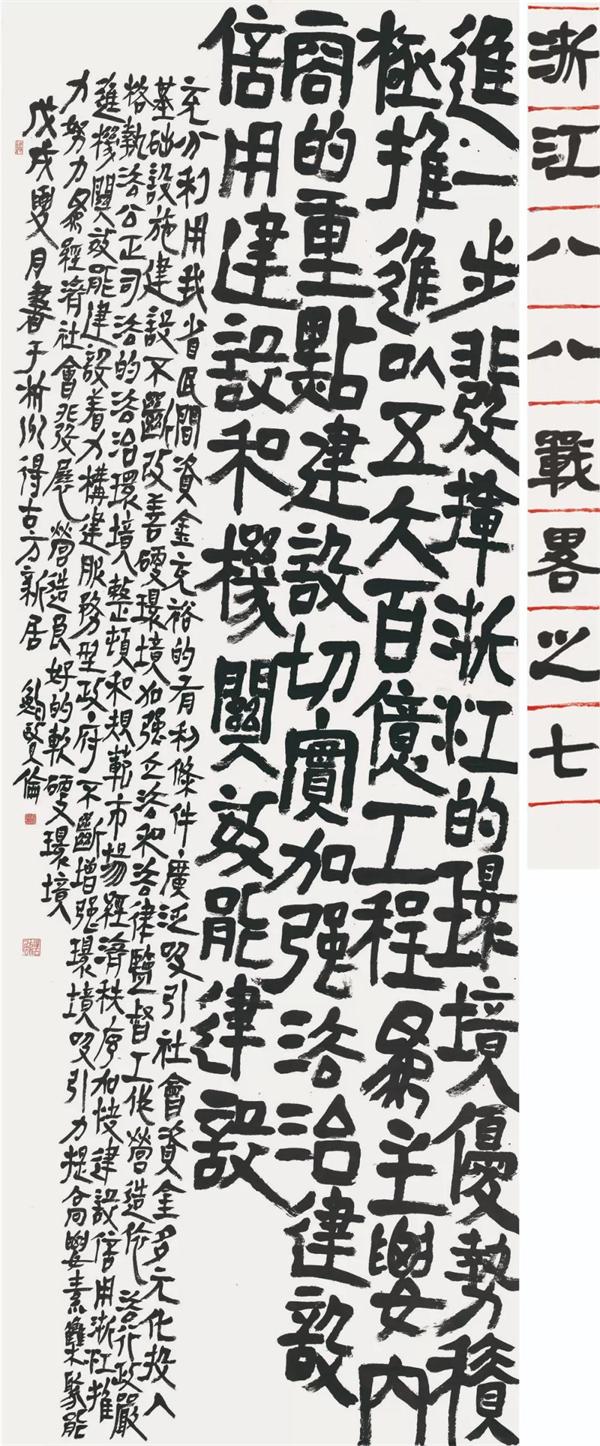 浙江八八戰畧之七
進一步發揮浙江的環境優勢積
極推進以五大百億工程為主要內
容的重點建設切實加强法治建設
信用建設和機關效能建設
充分利用我省民間資金充裕的有利條件廣泛吸引社會資金多元化投入
基础設施建設不斷改善硬環境加强立法和法律監督工作營造依法行政嚴
格執法公正司法的法治環境整頓和規範市場經濟秩序加快建設信用浙江推
進機關效能建設着力構建服務型政府不斷增强環境吸引力提高要素集聚能
力努力為經濟社會發展營造良好的軟硬環境
戊戌夏月書于杭州得古方新居 鮑賢倫